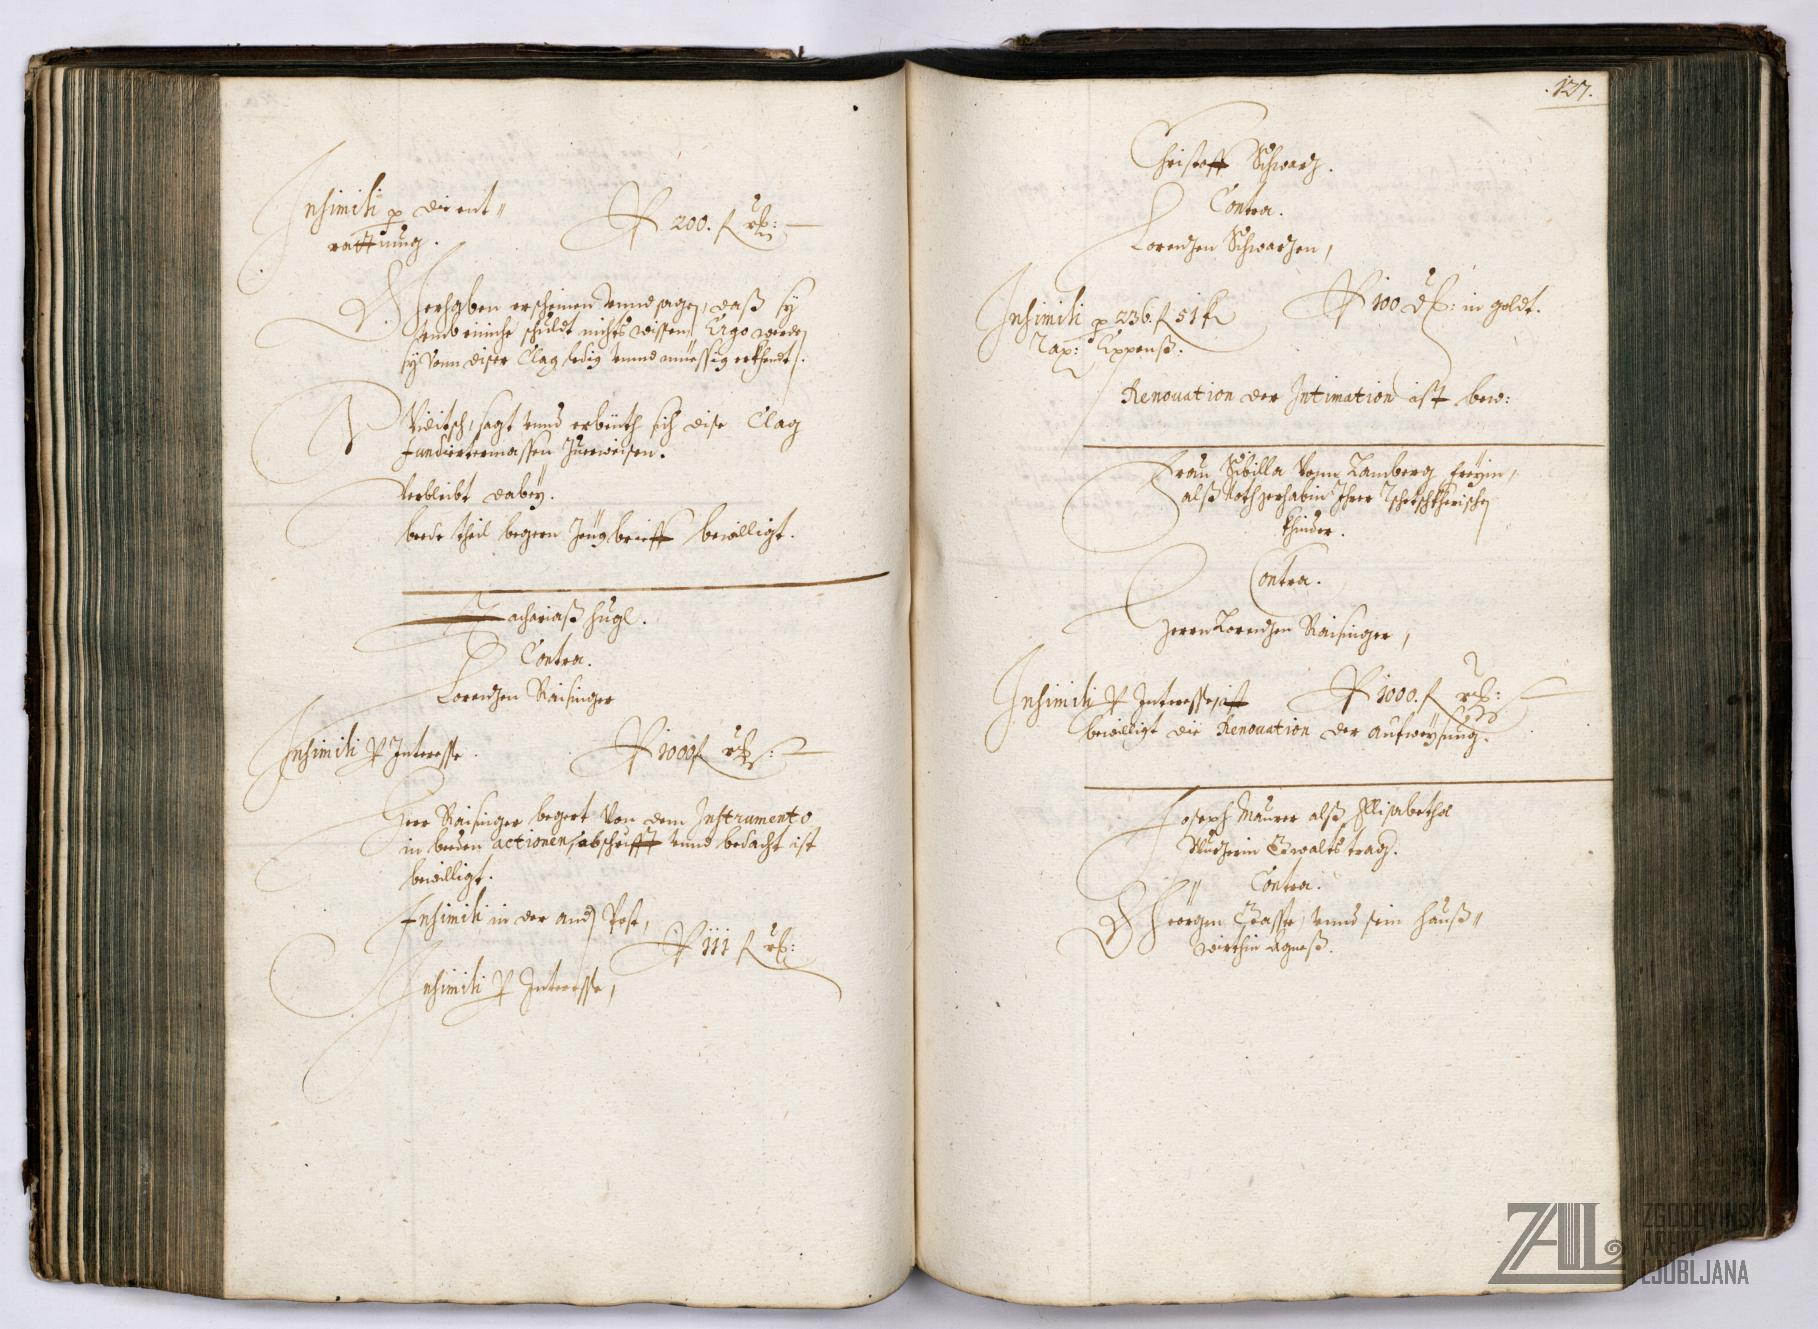 Insimili p die ent„
rattung.
P 200. f rh:
Gerhaben erscheinen vnnd sagen, daß sÿ
vmb einiche schuldt nichts wissen, Ergo werden
sÿ von diser Clag ledig vnnd müessig erkhendt.
Viditsch, sagt vnnd erbeüth sich dise Clag
fundiertermassen Zuerweisen.
Verbleibt dabeÿ.
beede theil begern Zeugbrieff bewilligt.
Zachariaß Hügl.
Contra.
Lorenzen Raisinger
Insimili P Interesse.
P 1000 f rh:
Herr Raisinger begert von dem Instrumento
in beeden actionen, abschrifft vnnd bedacht ist
bewilligt.
Insimili in der and Post,
P 111 f rh:
Insimili P Interesse,
.127.
Christoff Schwarz.
Contra.
Lorenzen Schwarzen,
Insimili p 236. f 51 k
P 100 D: in goldt.
Tax: Expenß.
Renouation der Intimation ist bew:
Frau Sibilla Vonn Lamberg freÿin,
alß Nothgerhabin Ihrer Tschetschkherischen
Khinder.
Contra.
Herrn Lorenzen Raisinger,
Insimili P Interesse, ist
P 1000. f rh:
bewilligt die Renouation der aufweÿsung.
Joseph Maurer alß Elisabetha
Gwalts trag.
Contra.
Geörgen vnnd sein Hauß„
wirthin Agneß.
ZAL ZGODOVINSKI
ARHIV
LJUBLJANA